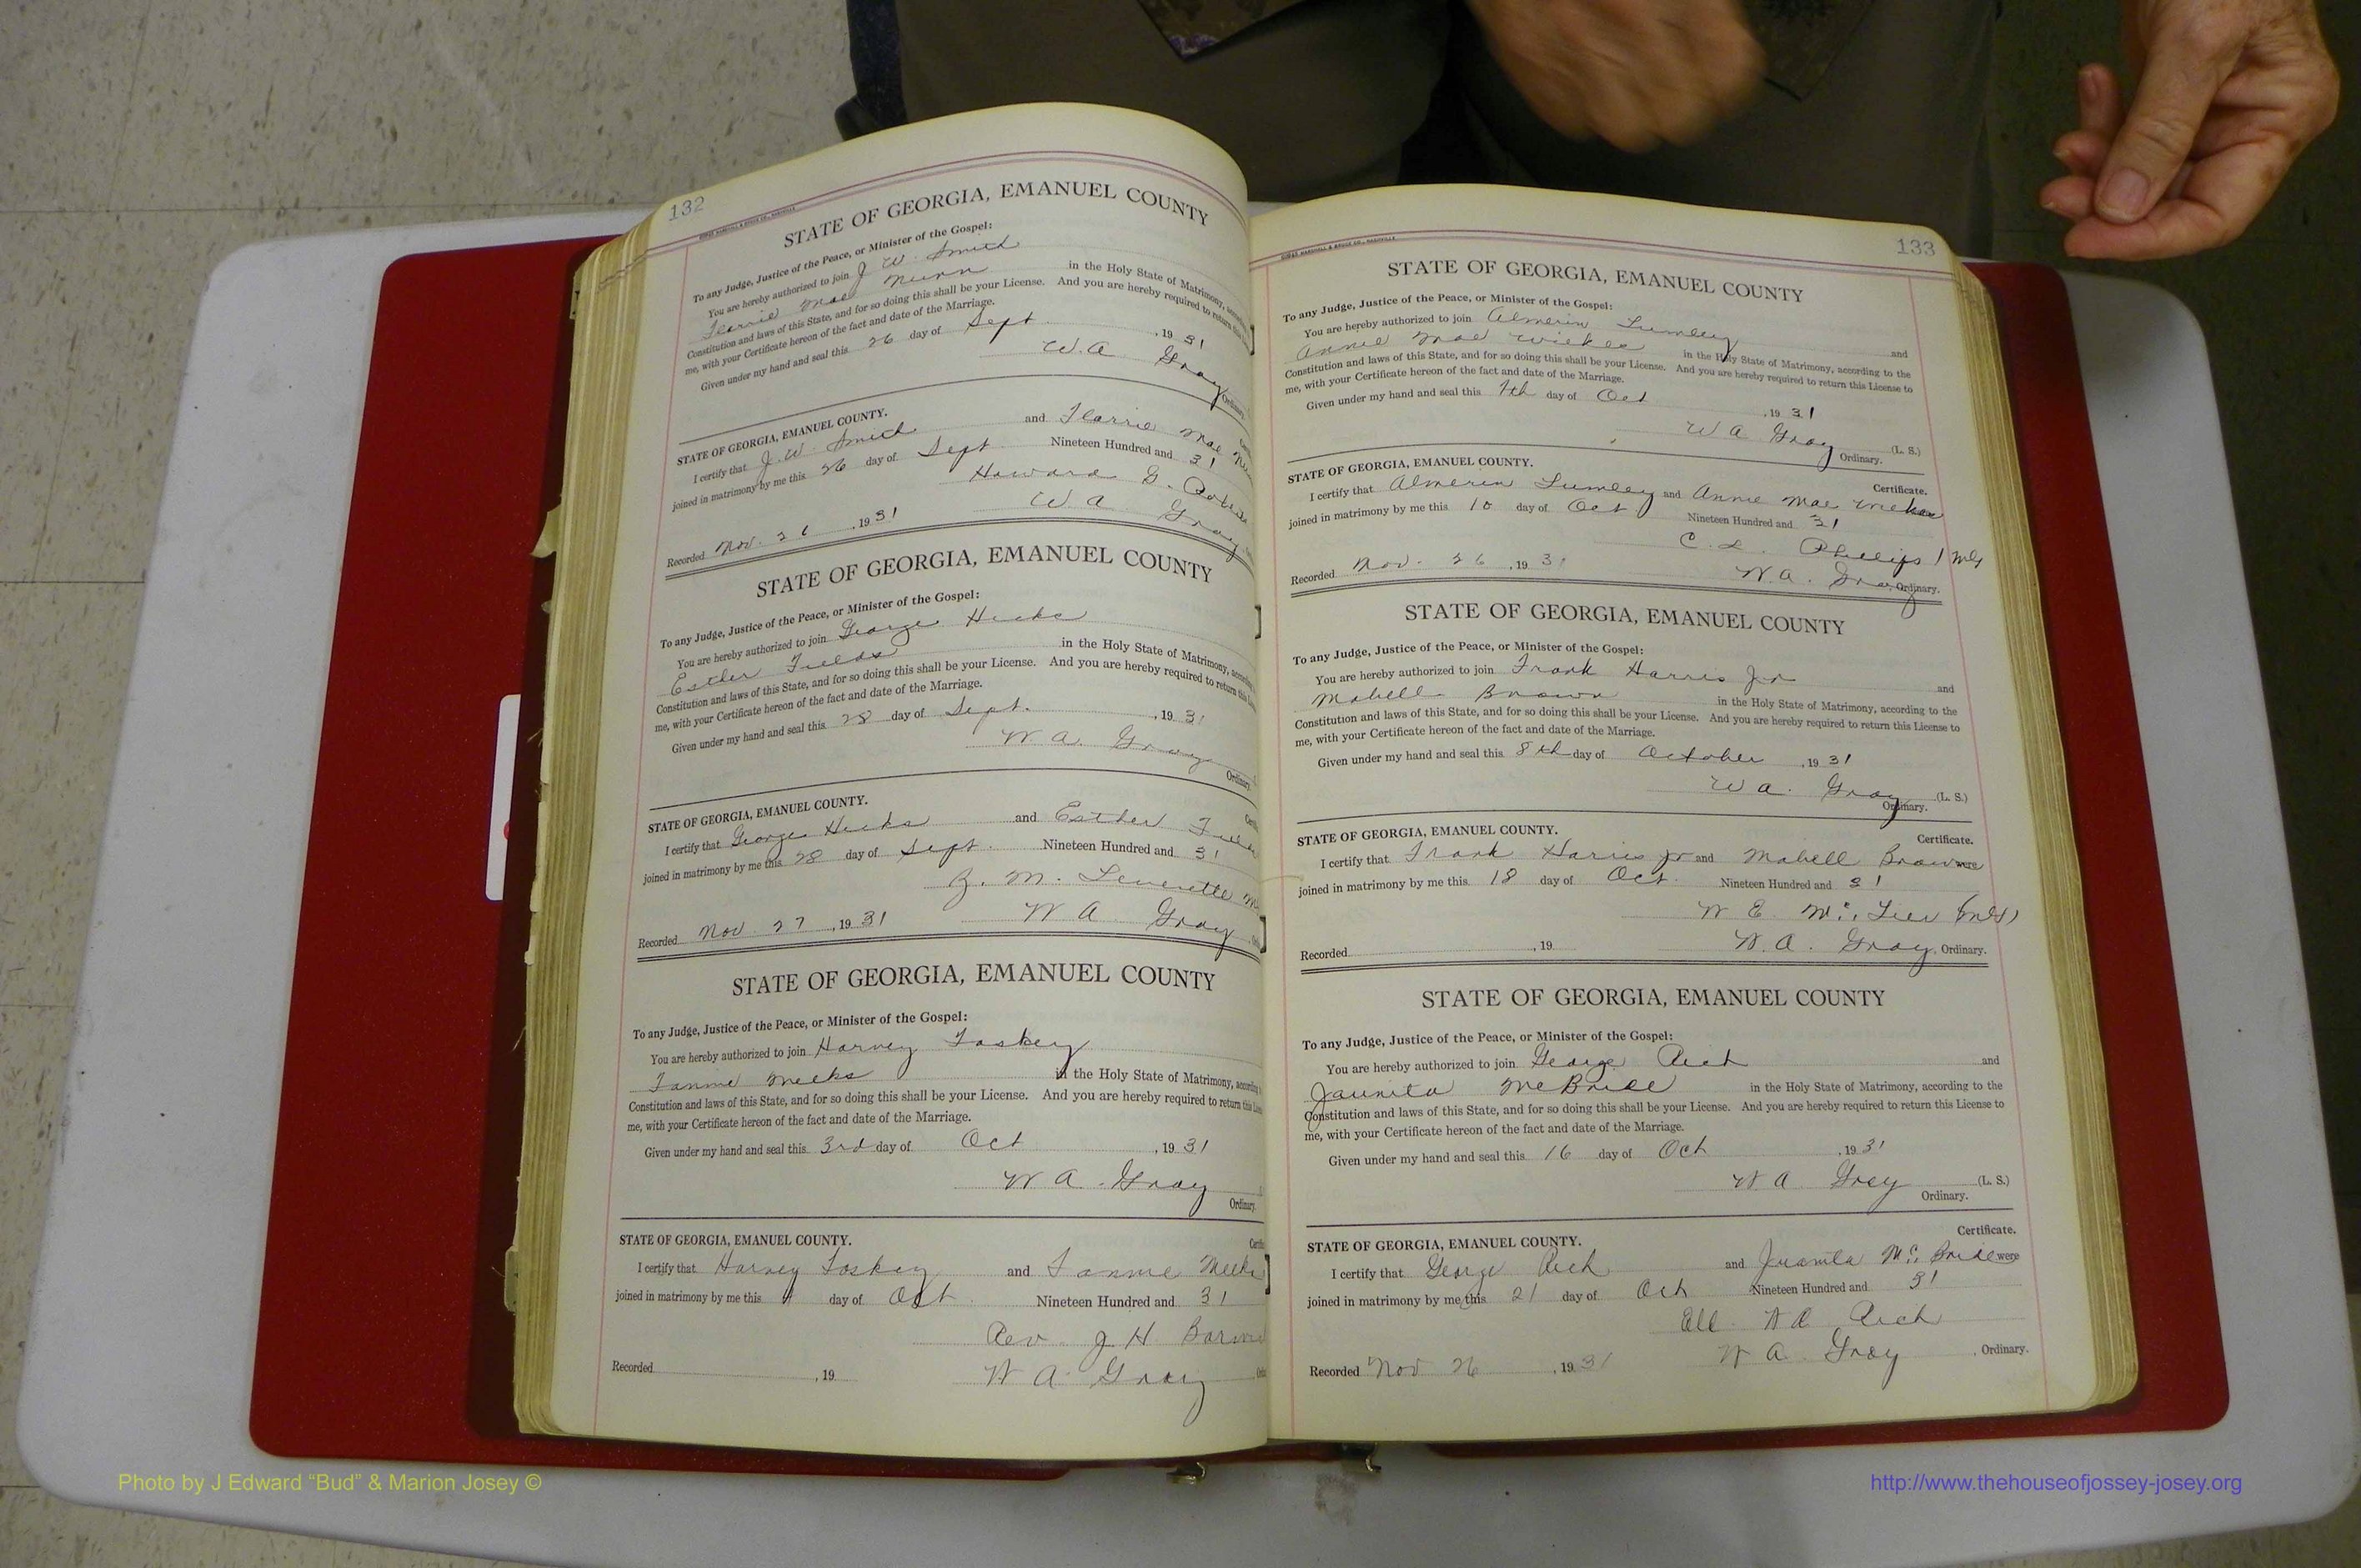 132
STATE OF GEORGIA, EMANUEL COUNTY
To any Judge, Justice of the Peace, or Minister of the Gospel:
You are hereby authorized to join J. W. Smith
Mae Nunn in the Holy State of Matrimony,
Constitution and laws of this State, and for so doing this shall be your License. And you are hereby required to return this
me, with your Certificate hereon of the fact and date of the Marriage.
Given under my hand and seal this 26 day of Sept. , 19 31
W. A Gray
Ordinary.
STATE OF GEORGIA, EMANUEL COUNTY.
I certify that J. W. Smith and Mae
joined in matrimony by me this 26 day of Sept Nineteen Hundred and 31
Howard
W A Gray
Recorded Nov. 26 , 19 31
STATE OF GEORGIA, EMANUEL COUNTY
To any Judge, Justice of the Peace, or Minister of the Gospel:
You are hereby authorized to join George Hicks
Esther Fields in the Holy State of Matrimony,
Constitution and laws of this State, and for so doing this shall be your License. And you are hereby required to return this
me, with your Certificate hereon of the fact and date of the Marriage.
Given under my hand and seal this 28 day of Sept. , 19 31
W A. Gray
Ordinary.
STATE OF GEORGIA, EMANUEL COUNTY.
I certify that George Hicks and Esther
joined in matrimony by me this 28 day of Sept. Nineteen Hundred and 31
M. Leverette
W A Gray
Recorded Nov 27 , 19 31
STATE OF GEORGIA, EMANUEL COUNTY
To any Judge, Justice of the Peace, or Minister of the Gospel:
You are hereby authorized to join Harvey Foskey
Fannie Meeks in the Holy State of Matrimony,
Constitution and laws of this State, and for so doing this shall be your License. And you are hereby required to return this
me, with your Certificate hereon of the fact and date of the Marriage.
Given under my hand and seal this 3rd day of Oct , 19 31
W A. Gray
Ordinary.
STATE OF GEORGIA, EMANUEL COUNTY.
I certify that Harvey Foskey and Fannie Meeks
joined in matrimony by me this day of Oct Nineteen Hundred and 31
Rev. J H
Recorded , 19 W A. Gray
133
STATE OF GEORGIA, EMANUEL COUNTY
To any Judge, Justice of the Peace, or Minister of the Gospel:
You are hereby authorized to join Almerin Lumley and
Annie Mae Wilkes in the Holy State of Matrimony, according to the
Constitution and laws of this State, and for so doing this shall be your License. And you are hereby required to return this License to
me, with your Certificate hereon of the fact and date of the Marriage.
Given under my hand and seal this day of Oct , 19 31
W A Gray (L. S.)
Ordinary.
STATE OF GEORGIA, EMANUEL COUNTY. Certificate.
I certify that Almerin Lumley and Annie Mae
joined in matrimony by me this 10 day of Oct. Nineteen Hundred and 31
C. L. Phillips
Recorded Nov. 26 , 19 31 W. A. Gray Ordinary.
STATE OF GEORGIA, EMANUEL COUNTY
To any Judge, Justice of the Peace, or Minister of the Gospel:
You are hereby authorized to join Frank Harris Jr and
Mabell Brown in the Holy State of Matrimony, according to the
Constitution and laws of this State, and for so doing this shall be your License. And you are hereby required to return this License to
me, with your Certificate hereon of the fact and date of the Marriage.
Given under my hand and seal this 8th day of October , 19 31
W A. Gray (L. S.)
Ordinary.
STATE OF GEORGIA, EMANUEL COUNTY. Certificate.
I certify that Frank Harris Jr and Mabell Brown were
joined in matrimony by me this 18 day of Oct. Nineteen Hundred and 31
W E
Recorded , 19 W. A. Gray, Ordinary.
STATE OF GEORGIA, EMANUEL COUNTY
To any Judge, Justice of the Peace, or Minister of the Gospel:
You are hereby authorized to join George Rich and
Jaunita McBride in the Holy State of Matrimony, according to the
Constitution and laws of this State, and for so doing this shall be your License. And you are hereby required to return this License to
me, with your Certificate hereon of the fact and date of the Marriage.
Given under my hand and seal this 16 day of Oct , 19 31
W A Gray (L. S.)
Ordinary.
STATE OF GEORGIA, EMANUEL COUNTY. Certificate.
I certify that George Rich and Juanita Mc Bride were
joined in matrimony by me this 21 day of Oct Nineteen Hundred and 31
Rich
W A. Gray , Ordinary.
Recorded Nov 26 , 19 31
Photo by J Edward “Bud” & Marion Josey ©
http://www.thehouseofjossey-josey.org